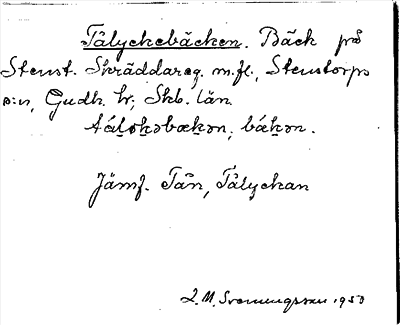 Tålyckebäcken. Bäck på
Stenst. Skräddareg. m.fl., Stenstorps
s:n, Gudh. hr, Skb. län.
bǽkən.
Jämf. Tån, Tålyckan
1950